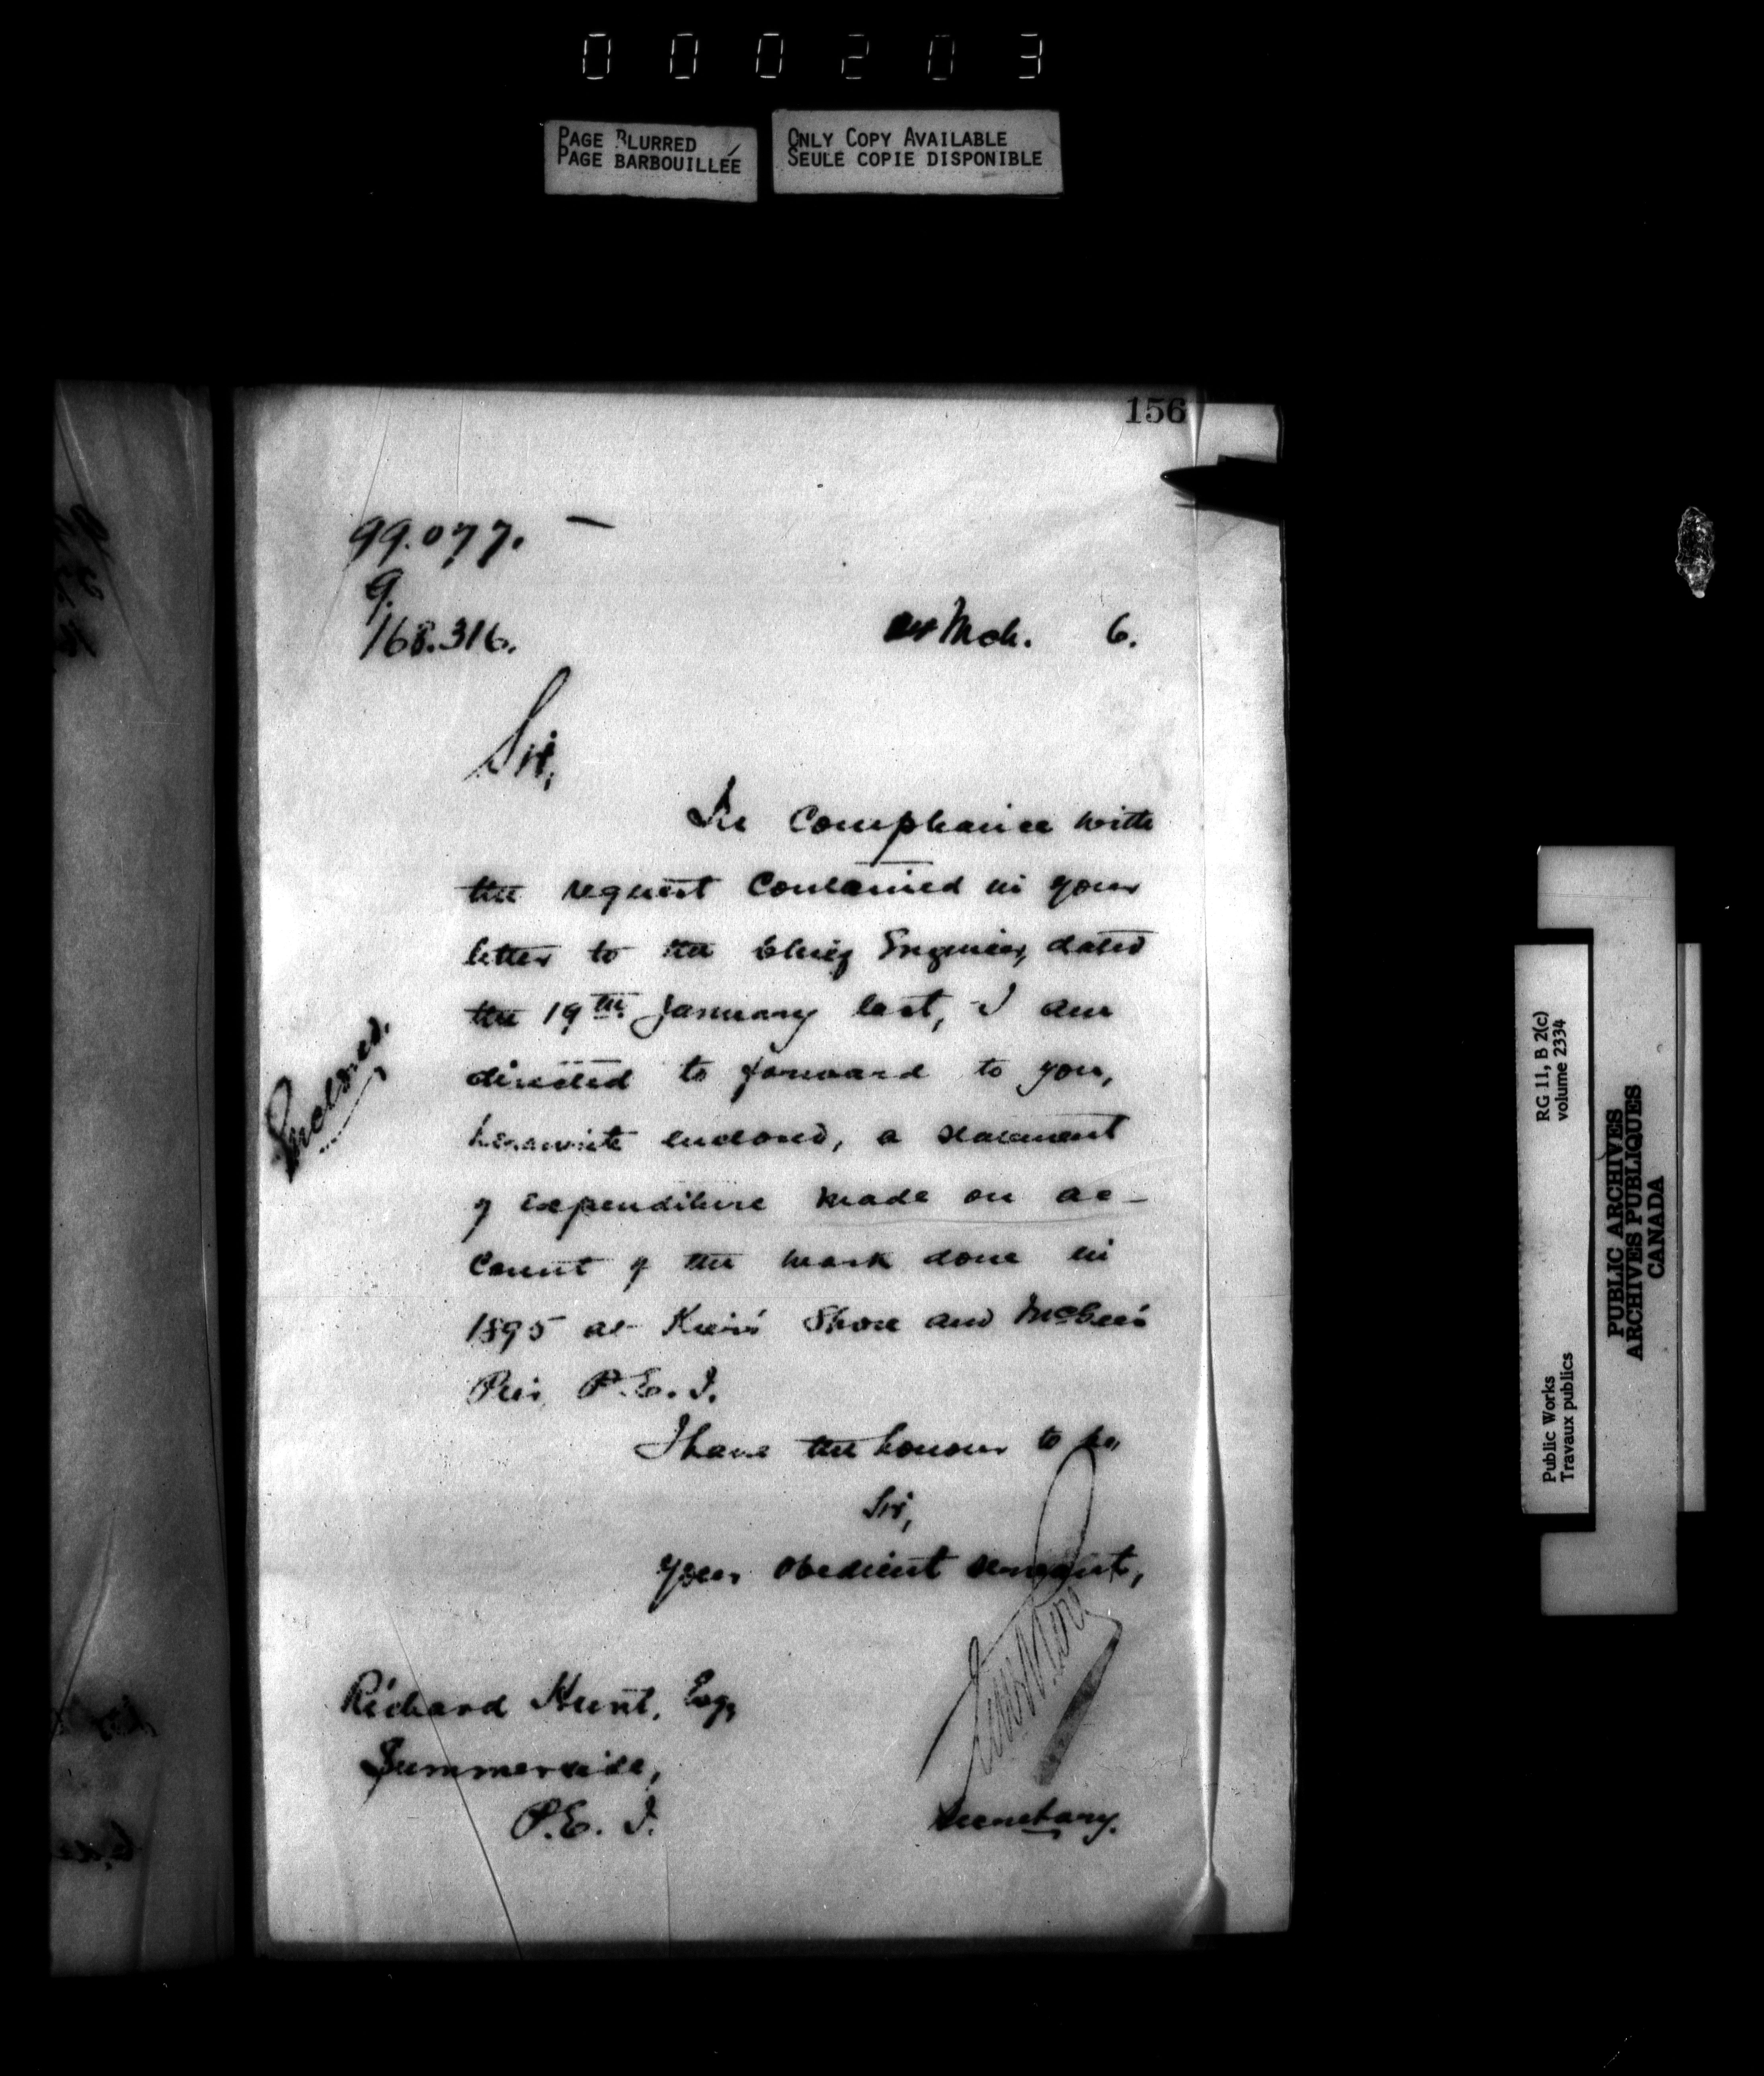 000203
PAGE BLURRED
PAGE BARBOUILLÉE
ONLY COPY AVAILABLE
SEULE COPIE DISPONIBLE
156
99.077.
9.
168.316.
Mch. 6.
Sir,
In compliance with
the request contained in your
letter to the Chief Engineer, dated
the 19th January last, I am
directed to forward to you,
herewith enclosed, a statement
of expenditure made on ac-
count of the work done in
1895 at Keir's Shore and McGee's
Pier, P.E.I.
Enclosed.
I have the honour to be,
Sir,
Your obedient servant,
Richard Hunt, Esq,
Summerside,
P.E.I.
Secretary.
RG 11, B 2(c)
volume 2334
Public Works
Travaux publics
PUBLIC ARCHIVES
ARCHIVES PUBLIQUES
CANADA